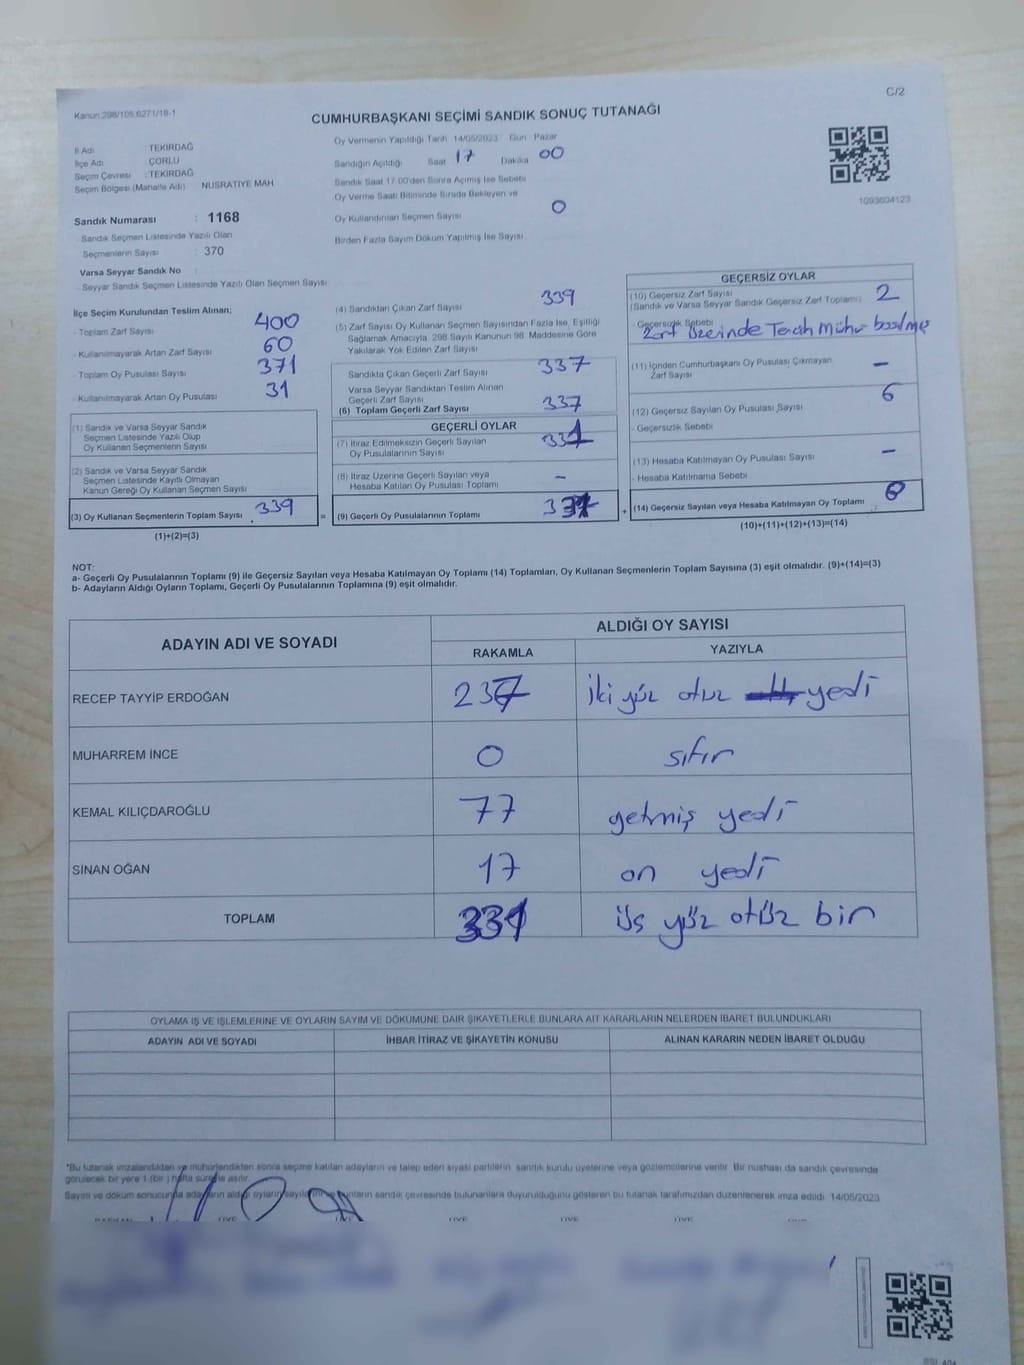 C/2
Kanun:298/105,6271/18-1
CUMHURBAŞKANI SEÇİMİ SANDIK SONUÇ TUTANAĞI
İl Adı TEKİRDAĞ
İlçe Adı ÇORLU
Seçim Çevresi : TEKİRDAĞ
Seçim Bölgesi (Mahalle Adı) NUSRATİYE MAH
Sandık Numarası : 1168
- Sandık Seçmen Listesinde Yazılı Olan
Seçmenlerin Sayısı : 370
Varsa Seyyar Sandık No :
- Seyyar Sandık Seçmen Listesinde Yazılı Olan Seçmen Sayısı
Oy Vermenin Yapıldığı Tarih 14/05/2023 Gün Pazar
Sandığın Açıldığı Saat 17 Dakika 00
Sandık Saat 17:00'den Sonra Açılmış İse Sebebi
Oy Verme Saati Bitiminde Sırada Bekleyen ve
Oy Kullandırılan Seçmen Sayısı 0
Birden Fazla Sayım Döküm Yapılmış İse Sayısı
1093604123
İlçe Seçim Kurulundan Teslim Alınan;
- Toplam Zarf Sayısı 400
- Kullanılmayarak Artan Zarf Sayısı 60
- Toplam Oy Pusulası Sayısı 371
- Kullanılmayarak Artan Oy Pusulası 31
(1) Sandık ve Varsa Seyyar Sandık
Seçmen Listesinde Yazılı Olup
Oy Kullanan Seçmenlerin Sayısı
(2) Sandık ve Varsa Seyyar Sandık
Seçmen Listesinde Kayıtlı Olmayan
Kanun Gereği Oy Kullanan Seçmen Sayısı
(3) Oy Kullanan Seçmenlerin Toplam Sayısı 339
(1)+(2)=(3)
=
(4) Sandıktan Çıkan Zarf Sayısı 339
(5) Zarf Sayısı Oy Kullanan Seçmen Sayısından Fazla İse, Eşitliği
Sağlamak Amacıyla, 298 Sayılı Kanunun 98. Maddesine Göre
Yakılarak Yok Edilen Zarf Sayısı
Sandıkta Çıkan Geçerli Zarf Sayısı 337
Varsa Seyyar Sandıktan Teslim Alınan
Geçerli Zarf Sayısı
(6) Toplam Geçerli Zarf Sayısı 337
GEÇERLİ OYLAR
(7) İtiraz Edilmeksizin Geçerli Sayılan 331
Oy Pusulalarının Sayısı
(8) İtiraz Üzerine Geçerli Sayılan veya
Hesaba Katılan Oy Pusulası Toplamı –
(9) Geçerli Oy Pusulalarının Toplamı
+
GEÇERSİZ OYLAR
(10) Geçersiz Zarf Sayısı 2
(Sandık ve Varsa Seyyar Sandık Geçersiz Zarf Toplamı)
- Geçersizlik Sebebi
Zarf üzerinde Tercih Mühür basılmış
(11) İçinden Cumhurbaşkanı Oy Pusulası Çıkmayan –
Zarf Sayısı
(12) Geçersiz Sayılan Oy Pusulası Sayısı 6
- Geçersizlik Sebebi
(13) Hesaba Katılmayan Oy Pusulası Sayısı –
- Hesaba Katılmama Sebebi
(14) Geçersiz Sayılan veya Hesaba Katılmayan Oy Toplamı
(10)+(11)+(12)+(13)=(14)
NOT:
a- Geçerli Oy Pusulalarının Toplamı (9) ile Geçersiz Sayılan veya Hesaba Katılmayan Oy Toplamı (14) Toplamları, Oy Kullanan Seçmenlerin Toplam Sayısına (3) eşit olmalıdır. (9)+(14)=(3)
b- Adayların Aldığı Oyların Toplamı, Geçerli Oy Pusulalarının Toplamına (9) eşit olmalıdır.
ADAYIN ADI VE SOYADI ALDIĞI OY SAYISI
RAKAMLA YAZIYLA
RECEP TAYYİP ERDOĞAN 237 iki yüz otuz yedi
MUHARREM İNCE 0 sıfır
KEMAL KILIÇDAROĞLU 77 yetmiş yedi
SİNAN OĞAN 17 on yedi
TOPLAM 331 üç yüz otüz bir
OYLAMA İŞ VE İŞLEMLERİNE VE OYLARIN SAYIM VE DÖKÜMÜNE DAİR ŞİKAYETLERLE BUNLARA AİT KARARLARIN NELERDEN İBARET BULUNDUKLARI
ADAYIN ADI VE SOYADI İHBAR İTİRAZ VE ŞİKAYETİN KONUSU ALINAN KARARIN NEDEN İBARET OLDUĞU
*Bu tutanak imzalandıktan ve mühürlendikten sonra seçime katılan adayların ve talep eden siyasi partilerin sandık kurulu üyelerine veya gözlemcilerine verilir. Bir nüshası da sandık çevresinde
görülecek bir yere 1 (bir ) hafta süre ile asılır.
Sayım ve döküm sonucunda adayların aldığı oyların sayıları ve bunların sandık çevresinde bulunanlara duyurulduğunu gösteren bu tutanak tarafımızdan düzenlenerek imza edildi. 14/05/2023
BAŞKAN ÜYE ÜYE ÜYE ÜYE ÜYE